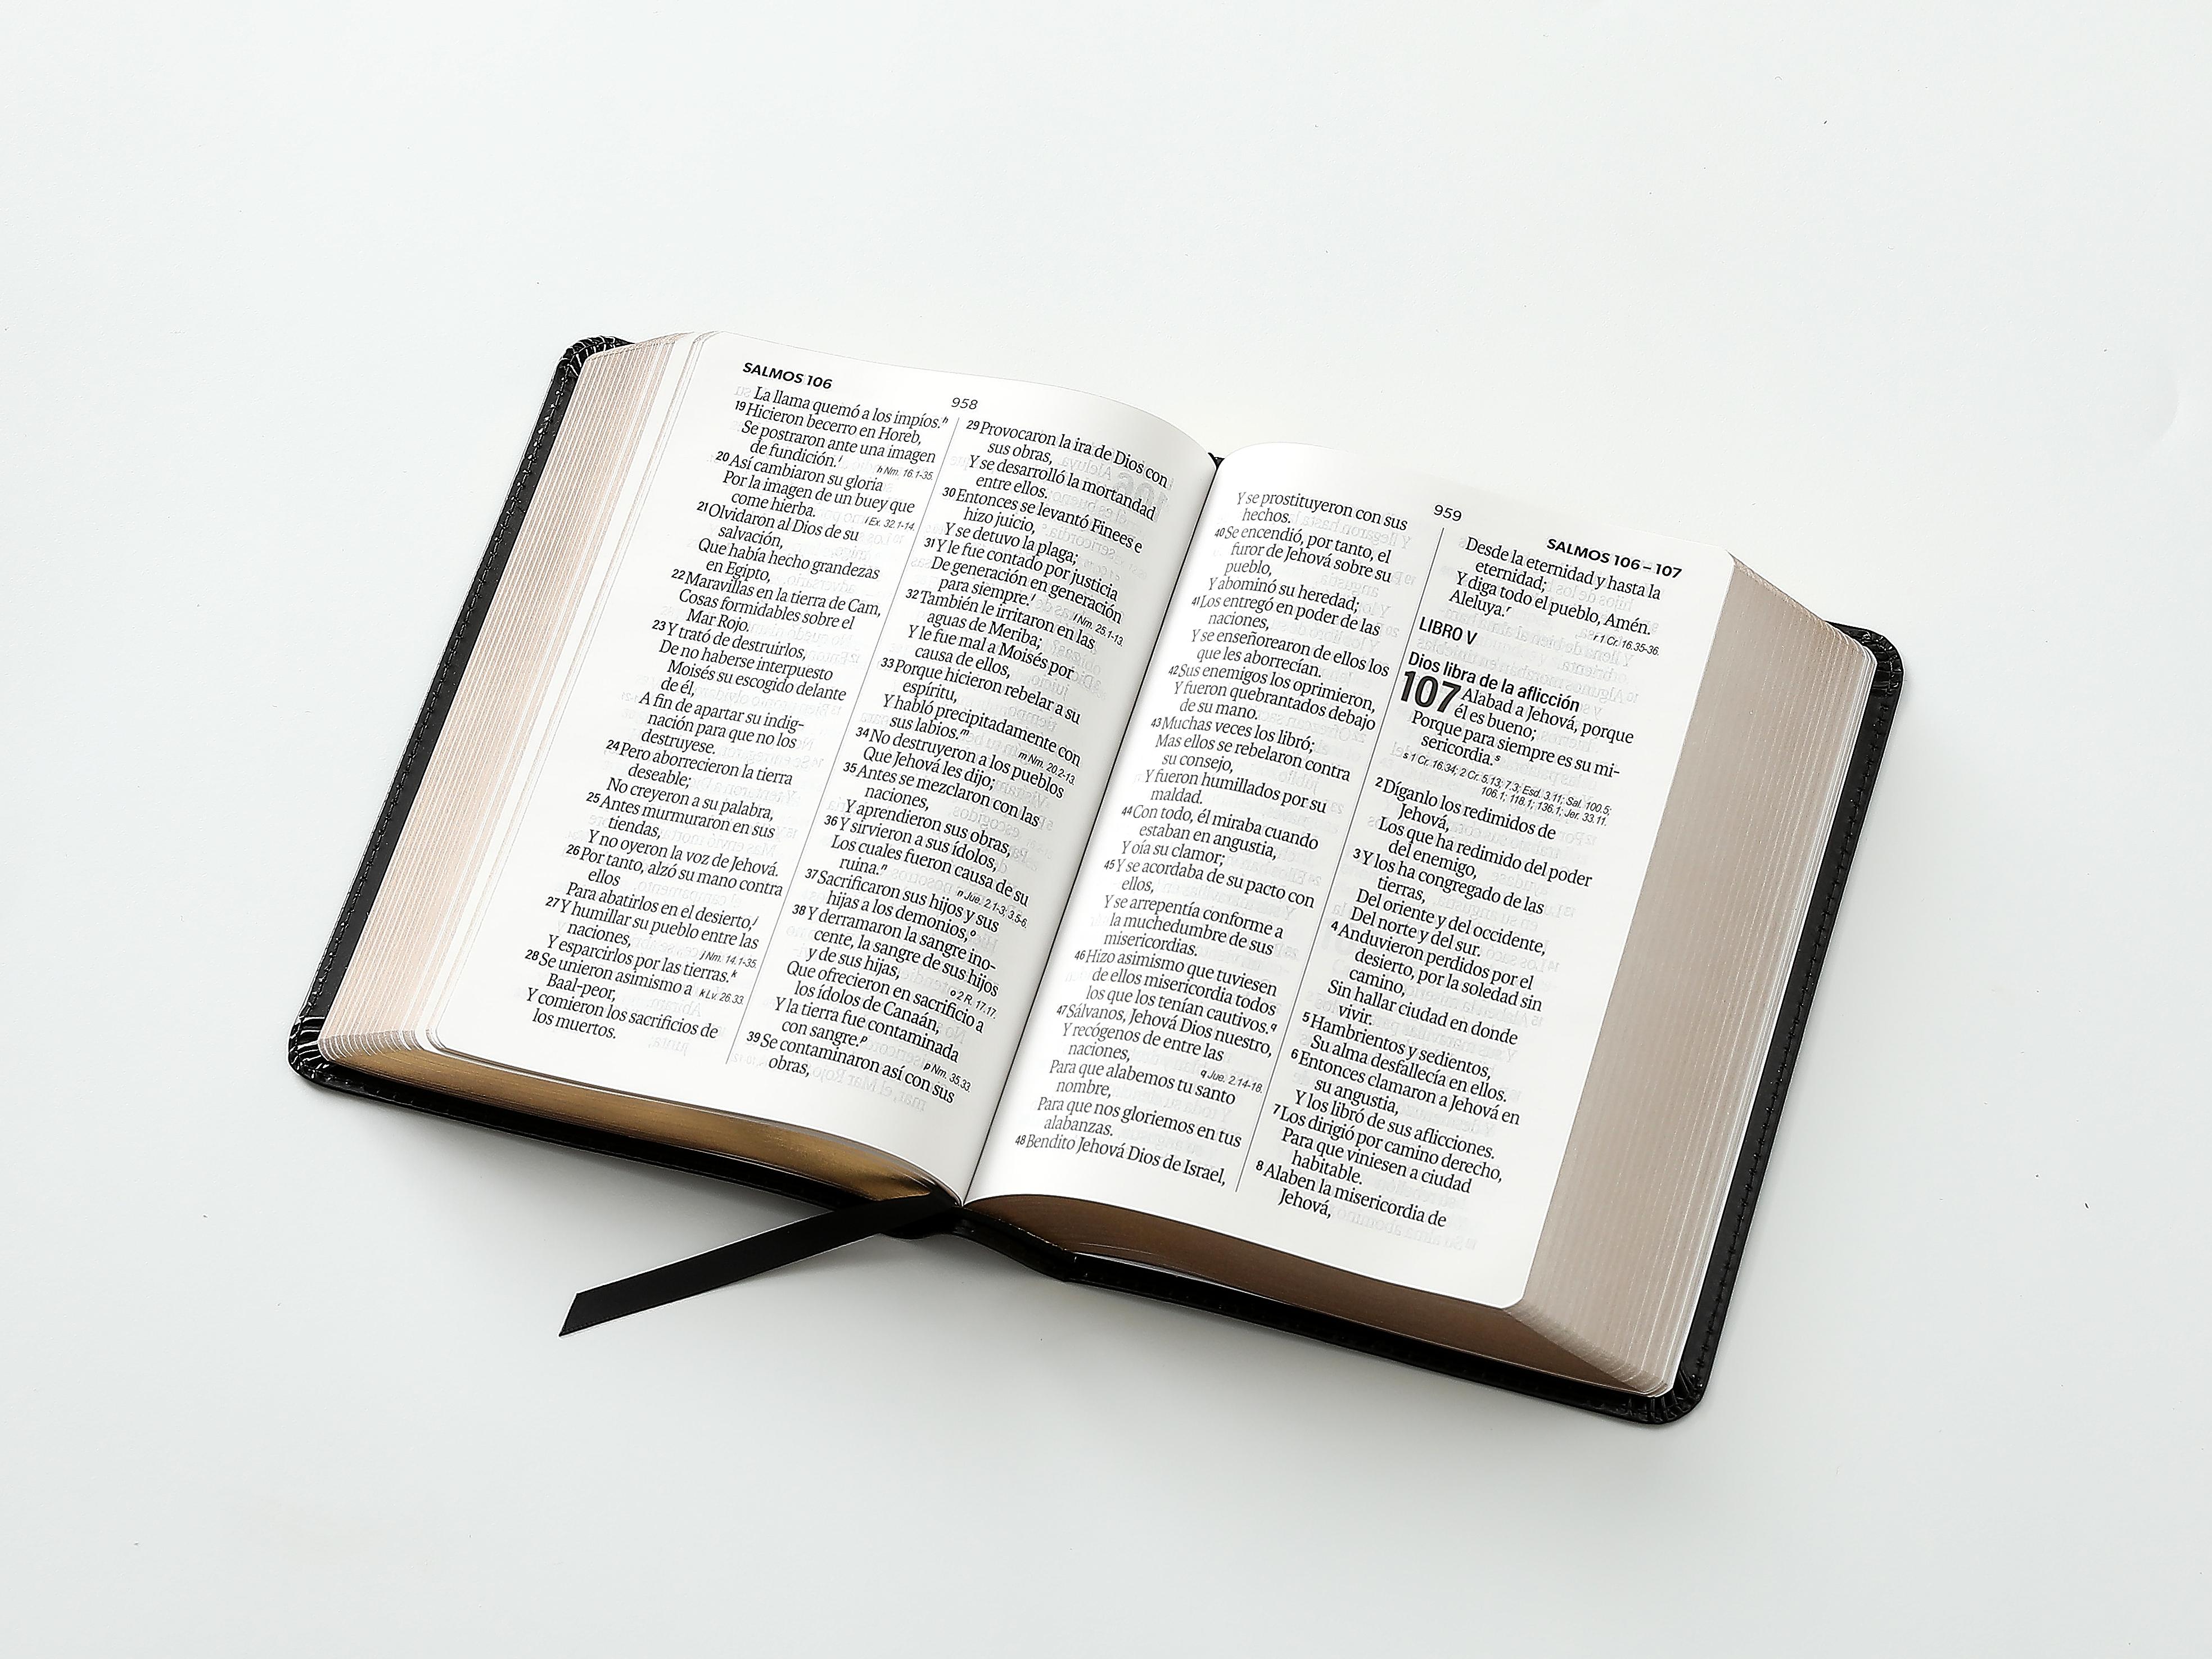 SALMOS 106
958
La llama quemó a los impíos.h
19 Hicieron becerro en Horeb,
Se postraron ante una imagen
de fundición.i
h Nm. 16.1-35.
20 Así cambiaron su gloria
Por la imagen de un buey que
come hierba.
i Ex. 32.1-14.
21 Olvidaron al Dios de su
salvación,
Que había hecho grandezas
en Egipto,
22 Maravillas en la tierra de Cam,
Cosas formidables sobre el
Mar Rojo.
23 Y trató de destruirlos,
De no haberse interpuesto
Moisés su escogido delante
de él,
A fin de apartar su indig-
nación para que no los
destruyese.
24 Pero aborrecieron la tierra
deseable;
No creyeron a su palabra,
25 Antes murmuraron en sus
tiendas,
Y no oyeron la voz de Jehová.
26 Por tanto, alzó su mano contra
ellos
Para abatirlos en el desierto,j
27 Y humillar su pueblo entre las
naciones,
j Nm. 14.1-35.
Y esparcirlos por las tierras.k
28 Se unieron asimismo a
k Lv. 26.33.
Baal-peor,
Y comieron los sacrificios de
los muertos.
29 Provocaron la ira de Dios con
sus obras,
Y se desarrolló la mortandad
entre ellos.
30 Entonces se levantó Finees e
hizo juicio,
Y se detuvo la plaga;
31 Y le fue contado por justicia
De generación en generación
para siempre.l
l Nm. 25.1-13.
32 También le irritaron en las
aguas de Meriba;
Y le fue mal a Moisés por
causa de ellos,
33 Porque hicieron rebelar a su
espíritu,
Y habló precipitadamente con
sus labios.m
m Nm. 20.2-13.
34 No destruyeron a los pueblos
Que Jehová les dijo;
35 Antes se mezclaron con las
naciones,
Y aprendieron sus obras,
36 Y sirvieron a sus ídolos,
Los cuales fueron causa de su
ruina.n
n Jue. 2.1-3; 3.5-6.
37 Sacrificaron sus hijos y sus
hijas a los demonios,o
38 Y derramaron la sangre ino-
cente, la sangre de sus hijos
y de sus hijas,
o 2 R. 17.17.
Que ofrecieron en sacrificio a
los ídolos de Canaán,
Y la tierra fue contaminada
con sangre.p
p Nm. 35.33.
39 Se contaminaron así con sus
obras,
959
SALMOS 106–107
Y se prostituyeron con sus
hechos.
40 Se encendió, por tanto, el
furor de Jehová sobre su
pueblo,
Y abominó su heredad;
41 Los entregó en poder de las
naciones,
Y se enseñorearon de ellos los
que les aborrecían.
42 Sus enemigos los oprimieron,
Y fueron quebrantados debajo
de su mano.
43 Muchas veces los libró;
Mas ellos se rebelaron contra
su consejo,
Y fueron humillados por su
maldad.
44 Con todo, él miraba cuando
estaban en angustia,
Y oía su clamor;
45 Y se acordaba de su pacto con
ellos,
Y se arrepentía conforme a
la muchedumbre de sus
misericordias.
46 Hizo asimismo que tuviesen
de ellos misericordia todos
los que los tenían cautivos.q
47 Sálvanos, Jehová Dios nuestro,
Y recógenos de entre las
naciones,
q Jue. 2.14-18.
Para que alabemos tu santo
nombre,
Para que nos gloriemos en tus
alabanzas.
48 Bendito Jehová Dios de Israel,
Desde la eternidad y hasta la
eternidad;
Y diga todo el pueblo, Amén.
Aleluya.r
r 1 Cr. 16.35-36.
LIBRO V
Dios libra de la aflicción
107 Alabad a Jehová, porque
él es bueno;
Porque para siempre es su mi-
sericordia.s
s 1 Cr. 16.34; 2 Cr. 5.13; 7.3; Esd. 3.11; Sal. 100.5;
106.1; 118.1; 136.1; Jer. 33.11.
2 Díganlo los redimidos de
Jehová,
Los que ha redimido del poder
del enemigo,
3 Y los ha congregado de las
tierras,
Del oriente y del occidente,
Del norte y del sur.
4 Anduvieron perdidos por el
desierto, por la soledad sin
camino,
Sin hallar ciudad en donde
vivir.
5 Hambrientos y sedientos,
Su alma desfallecía en ellos.
6 Entonces clamaron a Jehová en
su angustia,
Y los libró de sus aflicciones.
7 Los dirigió por camino derecho,
Para que viniesen a ciudad
habitable.
8 Alaben la misericordia de
Jehová,